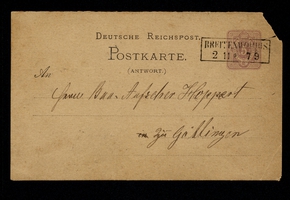 DEUTSCHE REICHSPOST.
POSTKARTE.
(ANTWORT.)
An
Herrn Bau-Aufseher Heppert
zu Göttingen